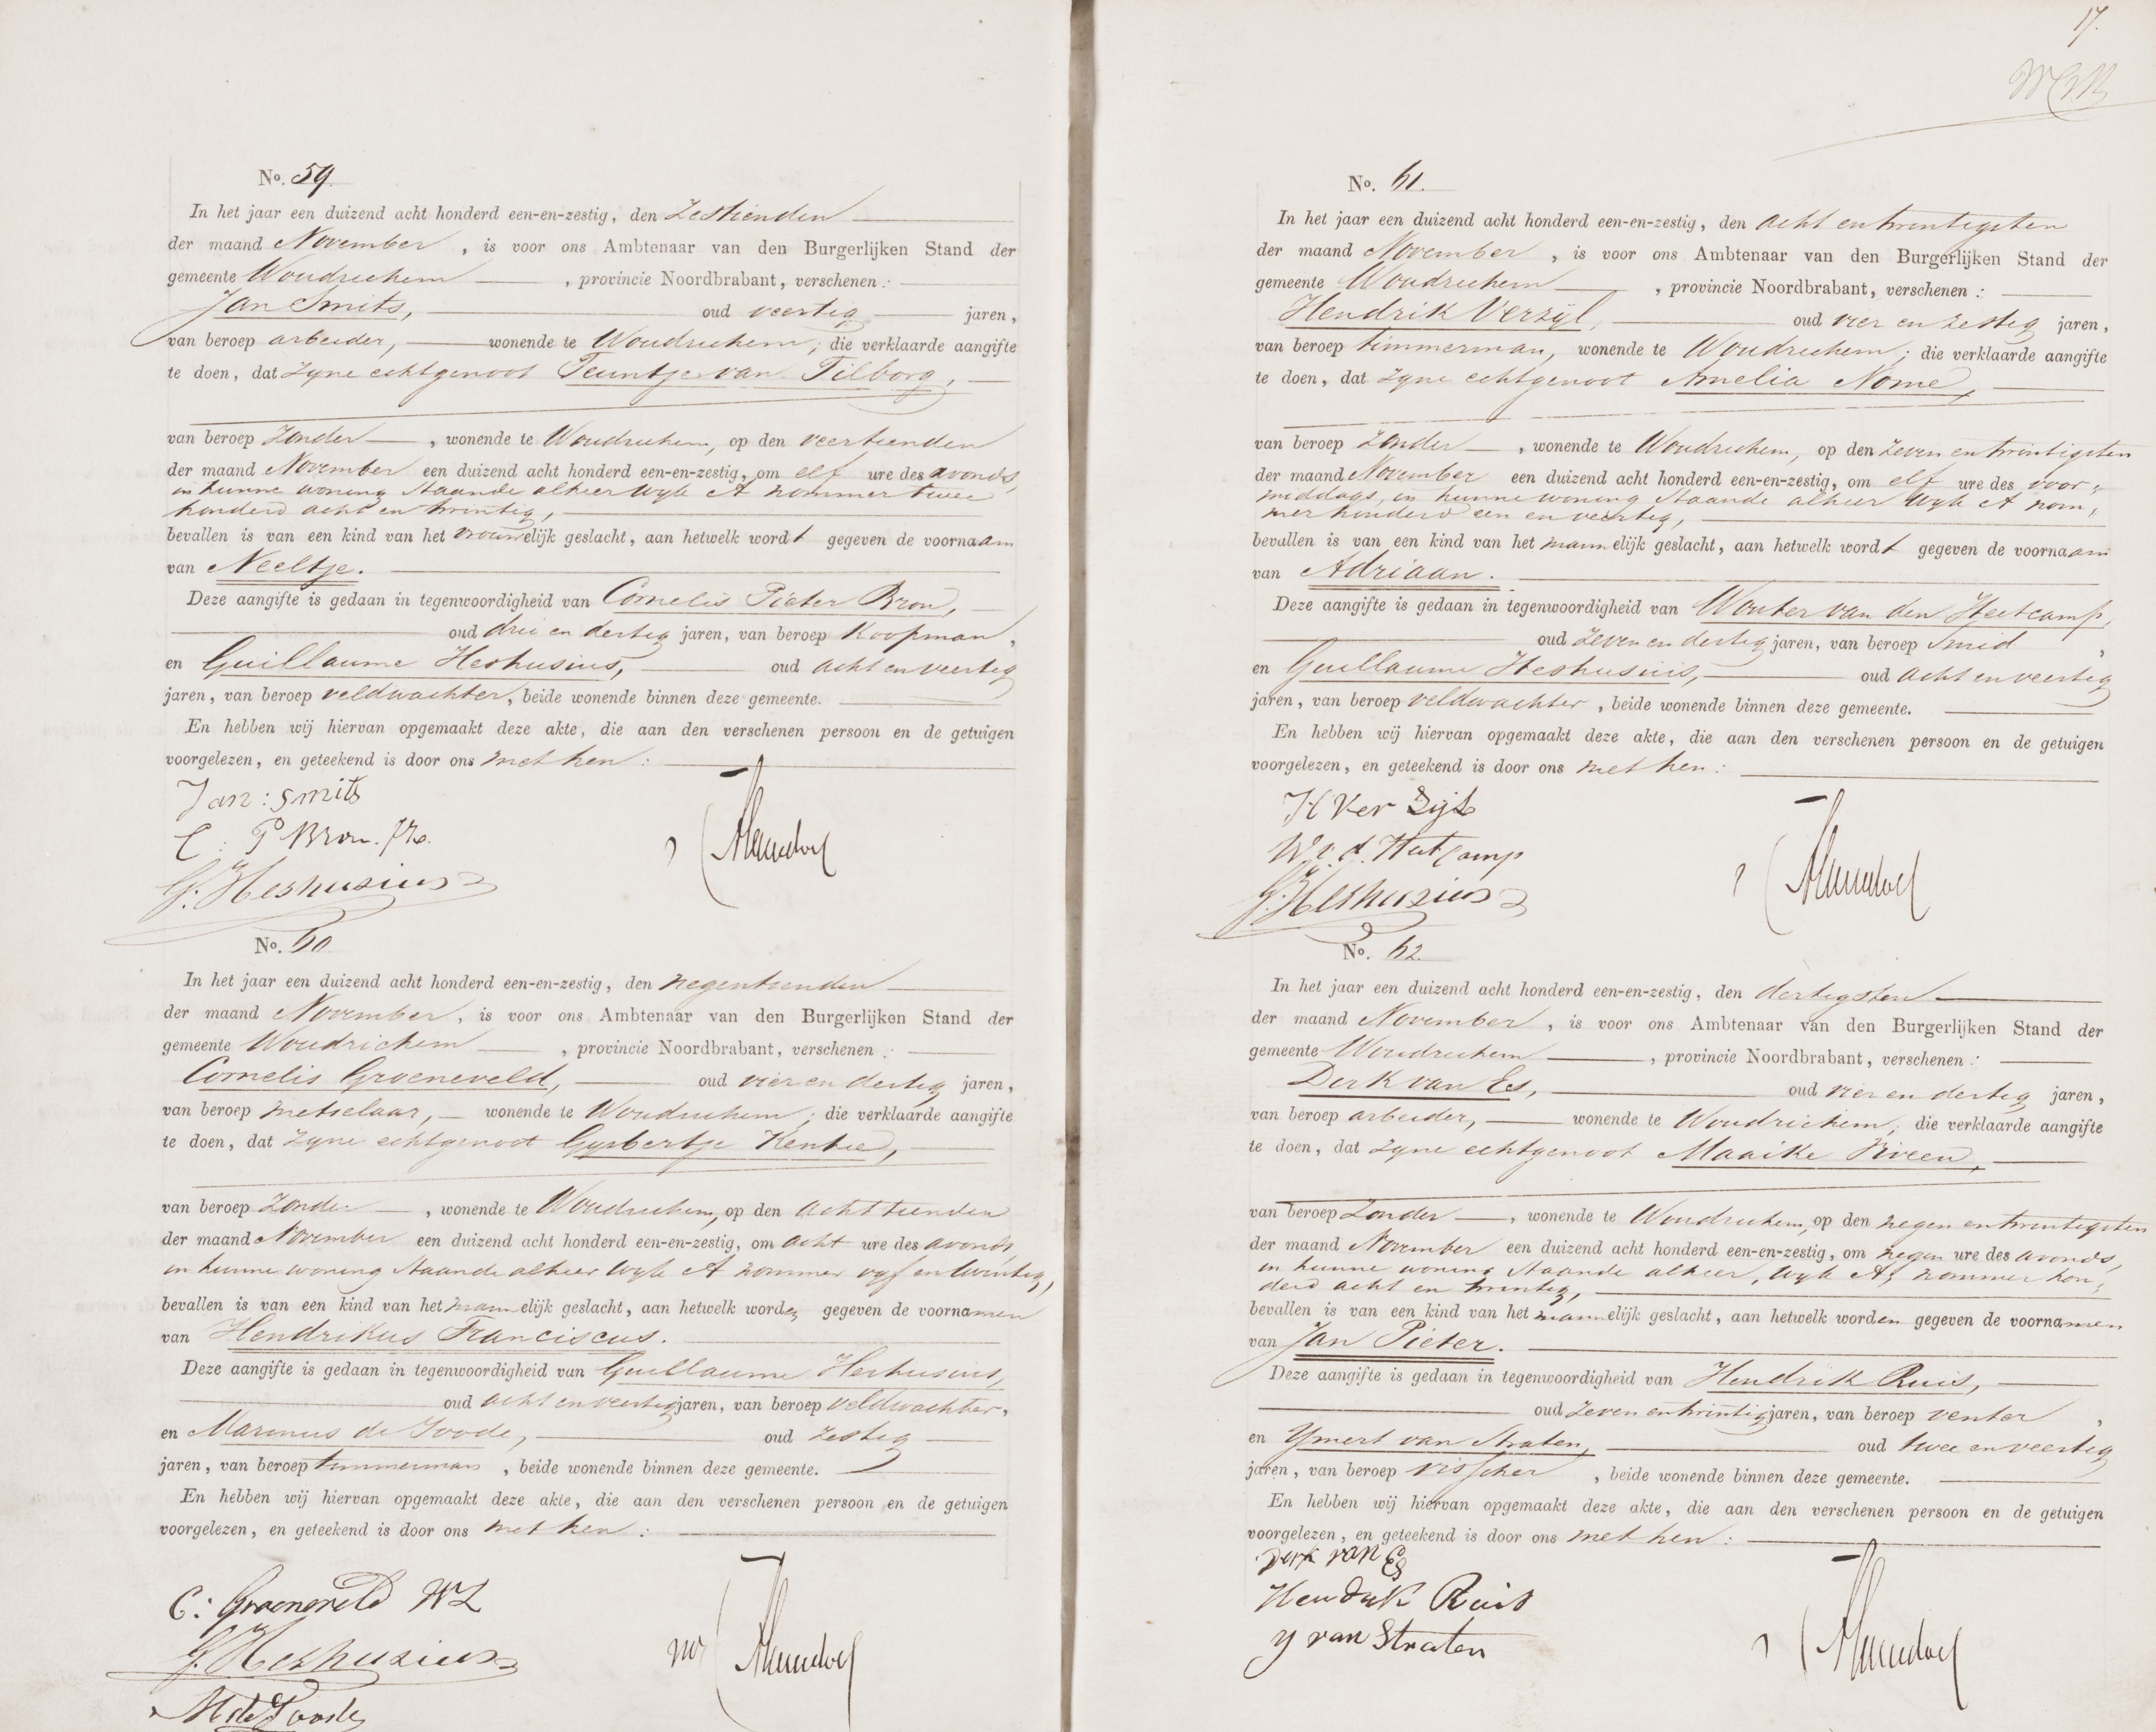 No. 59.
In het jaar een duizend acht honderd een-en-zestig, den Zestienden
der maand November, is voor ons Ambtenaar van den Burgerlijken Stand der
gemeente Woudrichem, provincie Noordbrabant, verschenen:
Jan Smits, oud veertig jaren,
van beroep arbeider, wonende te Woudrichem; die verklaarde aangifte
te doen, dat zyne echtgenoot Teuntje van Tilborg,
van beroep Zonder, wonende te Woudrichem, op den veertienden
der maand November een duizend acht honderd een-en-zestig, om elf ure des avonds,
in hunne woning staande alhier wyk A nommer twee
honderd acht en twintig,
bevallen is van een kind van het vrouwelijk geslacht, aan hetwelk wordt gegeven de voornaam
van Neeltje.
Deze aangifte is gedaan in tegenwoordigheid van Cornelis Pieter Bron,
oud drie en dertig jaren, van beroep Koopman,
en Guillaume Heshusius, oud acht en veertig
jaren, van beroep veldwachter, beide wonende binnen deze gemeente.
En hebben wij hiervan opgemaakt deze akte, die aan den verschenen persoon en de getuigen
voorgelezen, en geteekend is door ons met hen:
Jan: Smits
C. P Bron.
G. Heshusius
No. 60
In het jaar een duizend acht honderd een-en-zestig, den negentienden
der maand November, is voor ons Ambtenaar van den Burgerlijken Stand der
gemeente Woudrichem, provincie Noordbrabant, verschenen:
Cornelis Groeneveld, oud vier en dertig jaren,
van beroep metselaar, wonende te Woudrichem; die verklaarde aangifte
te doen, dat zyne echtgenoot Gysbertje Kentie,
van beroep Zonder, wonende te Woudrichem, op den achttienden
der maand November een duizend acht honderd een-en-zestig, om acht ure des avonds,
in hunne woning staande alhier wyk A nommer vyf en twintig,
bevallen is van een kind van het mannelijk geslacht, aan hetwelk worden gegeven de voornamen
van Hendrikus Franciscus.
Deze aangifte is gedaan in tegenwoordigheid van Guillaume Heshusius,
oud acht en veertig jaren, van beroep veldwachter,
en Marinus de Joode, oud zestig
jaren, van beroep timmerman, beide wonende binnen deze gemeente.
En hebben wij hiervan opgemaakt deze akte, die aan den verschenen persoon en de getuigen
voorgelezen, en geteekend is door ons met hen:
C: Groeneveld WZ
G. Heshusius
M de Joode
17.
No. 61.
In het jaar een duizend acht honderd een-en-zestig, den acht en twintigsten
der maand November, is voor ons Ambtenaar van den Burgerlijken Stand der
gemeente Woudrichem, provincie Noordbrabant, verschenen:
Hendrik Verzyl, oud vier en zestig jaren,
van beroep timmerman, wonende te Woudrichem; die verklaarde aangifte
te doen, dat zyne echtgenoot Amelia Nome,
van beroep Zonder, wonende te Woudrichem, op den zeven en twintigsten
der maand November een duizend acht honderd een-en-zestig, om elf ure des voor-
middags, in hunne woning staande alhier wyk A nom-
mer honderd een en veertig,
bevallen is van een kind van het mannelijk geslacht, aan hetwelk wordt gegeven de voornaam
van Adriaan.
Deze aangifte is gedaan in tegenwoordigheid van Wouter van den Heetcamp,
oud zeven en dertig jaren, van beroep smid,
en Guillaume Heshusius, oud acht en veertig
jaren, van beroep veldwachter, beide wonende binnen deze gemeente.
En hebben wij hiervan opgemaakt deze akte, die aan den verschenen persoon en de getuigen
voorgelezen, en geteekend is door ons met hen:
H Ver Zijl
W. v. d. Hetcamp
G. Heshusius
No. 62.
In het jaar een duizend acht honderd een-en-zestig, den dertigsten
der maand November, is voor ons Ambtenaar van den Burgerlijken Stand der
gemeente Woudrichem, provincie Noordbrabant, verschenen:
Derk van Es, oud vier en dertig jaren,
van beroep arbeider, wonende te Woudrichem; die verklaarde aangifte
te doen, dat zyne echtgenoot Maaike
van beroep Zonder, wonende te Woudrichem, op den negen en twintigsten
der maand November een duizend acht honderd een-en-zestig, om negen ure des avonds,
in hunne woning staande alhier, wyk A, nommer hon-
derd acht en twintig,
bevallen is van een kind van het mannelijk geslacht, aan hetwelk worden gegeven de voornamen
van Jan Pieter.
Deze aangifte is gedaan in tegenwoordigheid van Hendrik Ruis,
oud zeven en twintig jaren, van beroep venter,
en Ymert van Straten, oud twee en veertig
jaren, van beroep visscher, beide wonende binnen deze gemeente.
En hebben wij hiervan opgemaakt deze akte, die aan den verschenen persoon en de getuigen
voorgelezen, en geteekend is door ons met hen:
Derk van Es
Hendrik Ruis
y van Straten